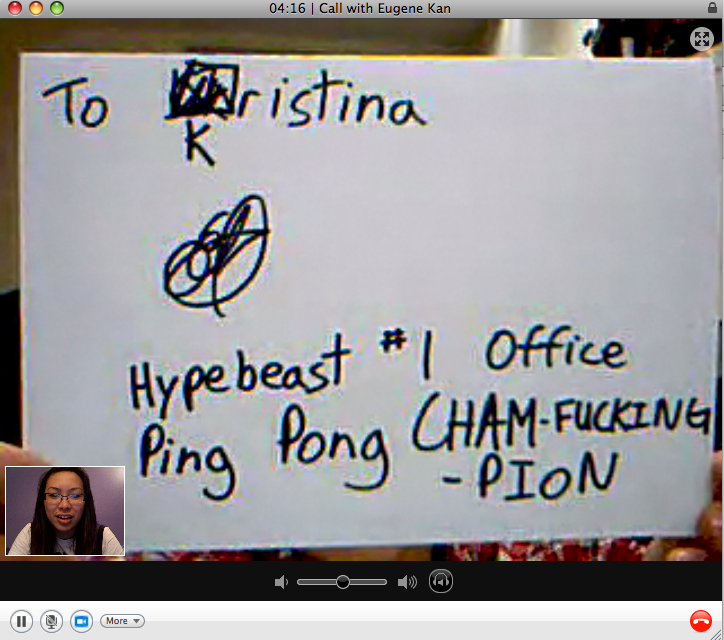 04:16 | Call with Eugene Kan
To ristina
K
Hypebeast #1 Office
Ping Pong CHAM-FUCKING
-PION
More